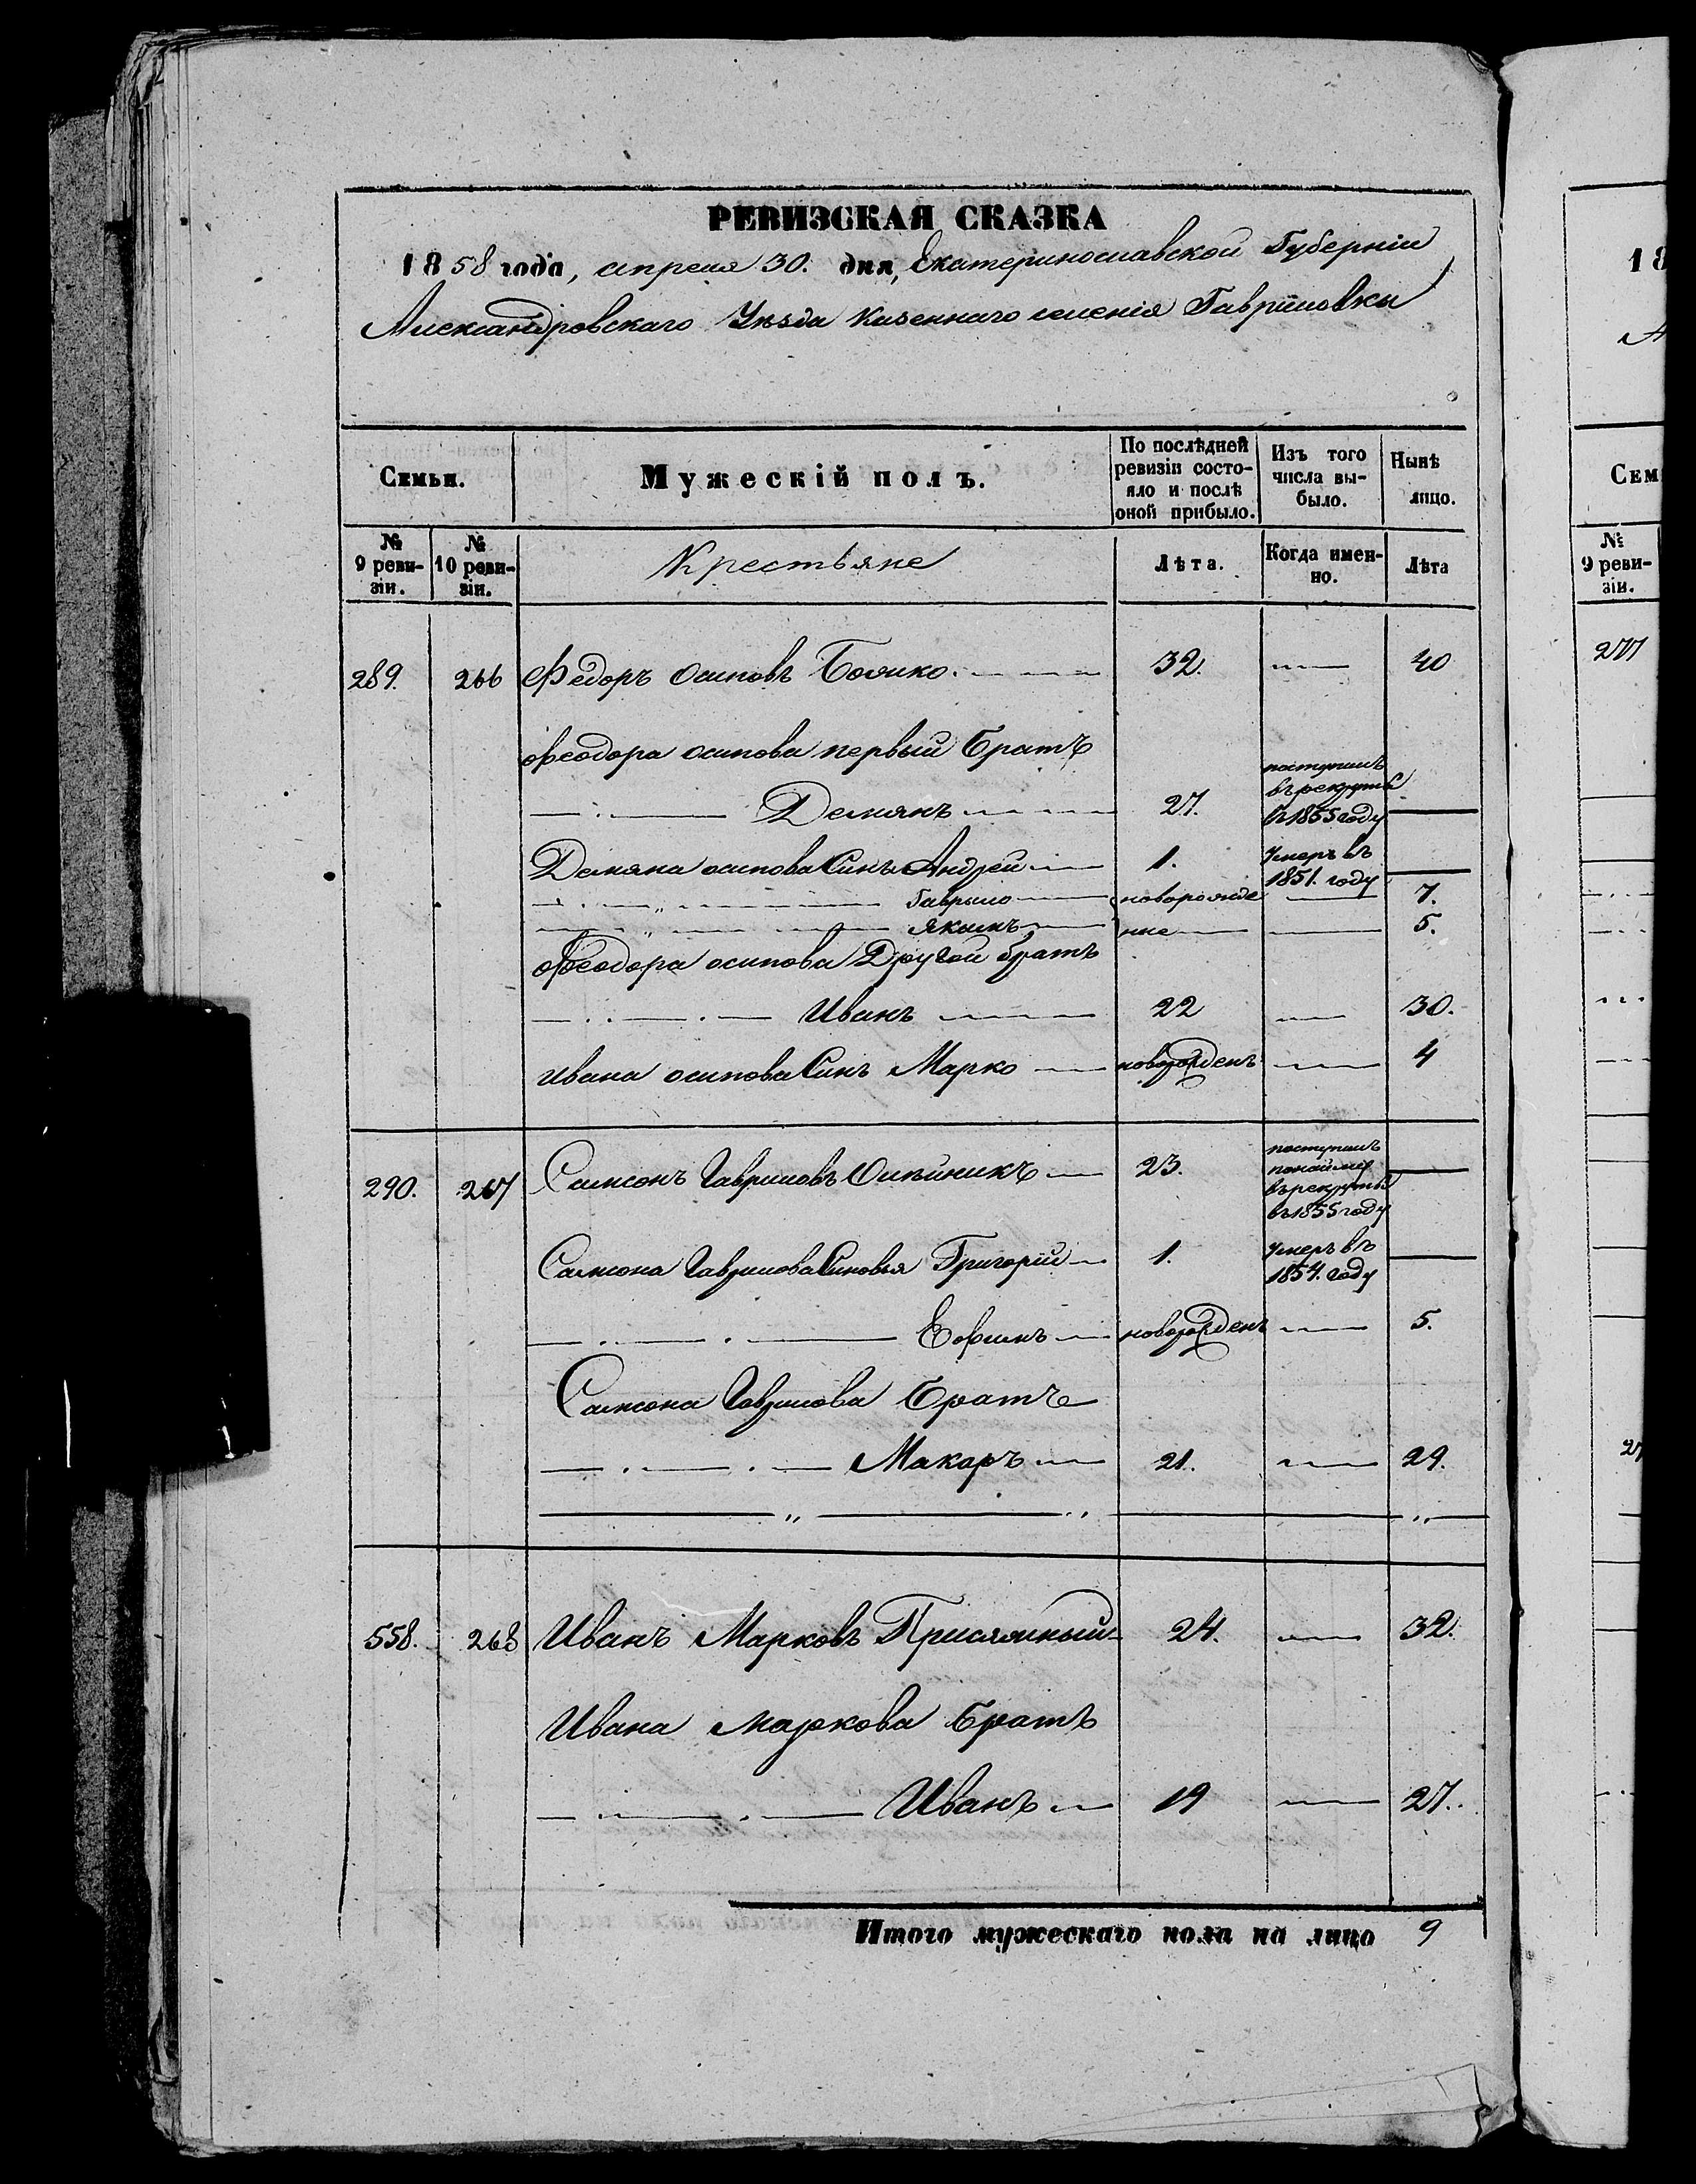 РЕВИЗСКАЯ СКАЗКА
1858 года, апреля 30. дня, Екатеринославской Губерніи
Александровскаго Уѣзда Казеннаго селенія Гавриловки
Семьи.
Мужескій полъ.
По послѣдней ревизіи состояло и послѣ оной прибыло.
Изъ того числа выбыло.
Нынѣ лицо.
№ 9 ревизіи.
№ 10 ревизіи.
Крестьяне
Лѣта.
Когда именно.
Лѣта
289. 266 Федоръ Осиповъ 32. 40
Феодора осипова первый братъ
Демянъ 27. поступилъ въ рекруты въ 1855 году
Демяна осипова Синъ Андрей 1. Умеръ въ 1851. году
Гаврыло новорожде 7.
Якымъ ние 5.
Феодора осипова Другой братъ
Иванъ 22 30.
Ивана осипова Синъ Марко новорожденъ 4
290. 267 Самсонъ Гавриловъ Олѣйникъ 23. поступилъ понайму въ рекруты въ 1855 году
Самсона Гаврилова Синовья Григорій 1. Умеръ въ 1854. году
Ефимъ новорожденъ 5.
Самсона Гаврилова братъ
Макаръ 21. 29.
558. 268 Иванъ Марковъ Присяжный 24. 32.
Ивана Маркова братъ
Иванъ 19 27.
Итого мужескаго пола на лицо 9
18
А
Сем
№ 9 ревизіи.
277
27